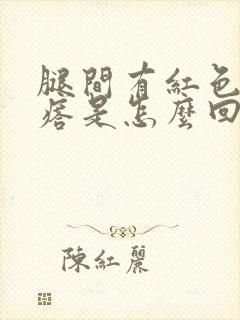 腿間有紅色
痞是怎麼回
陳紅麗